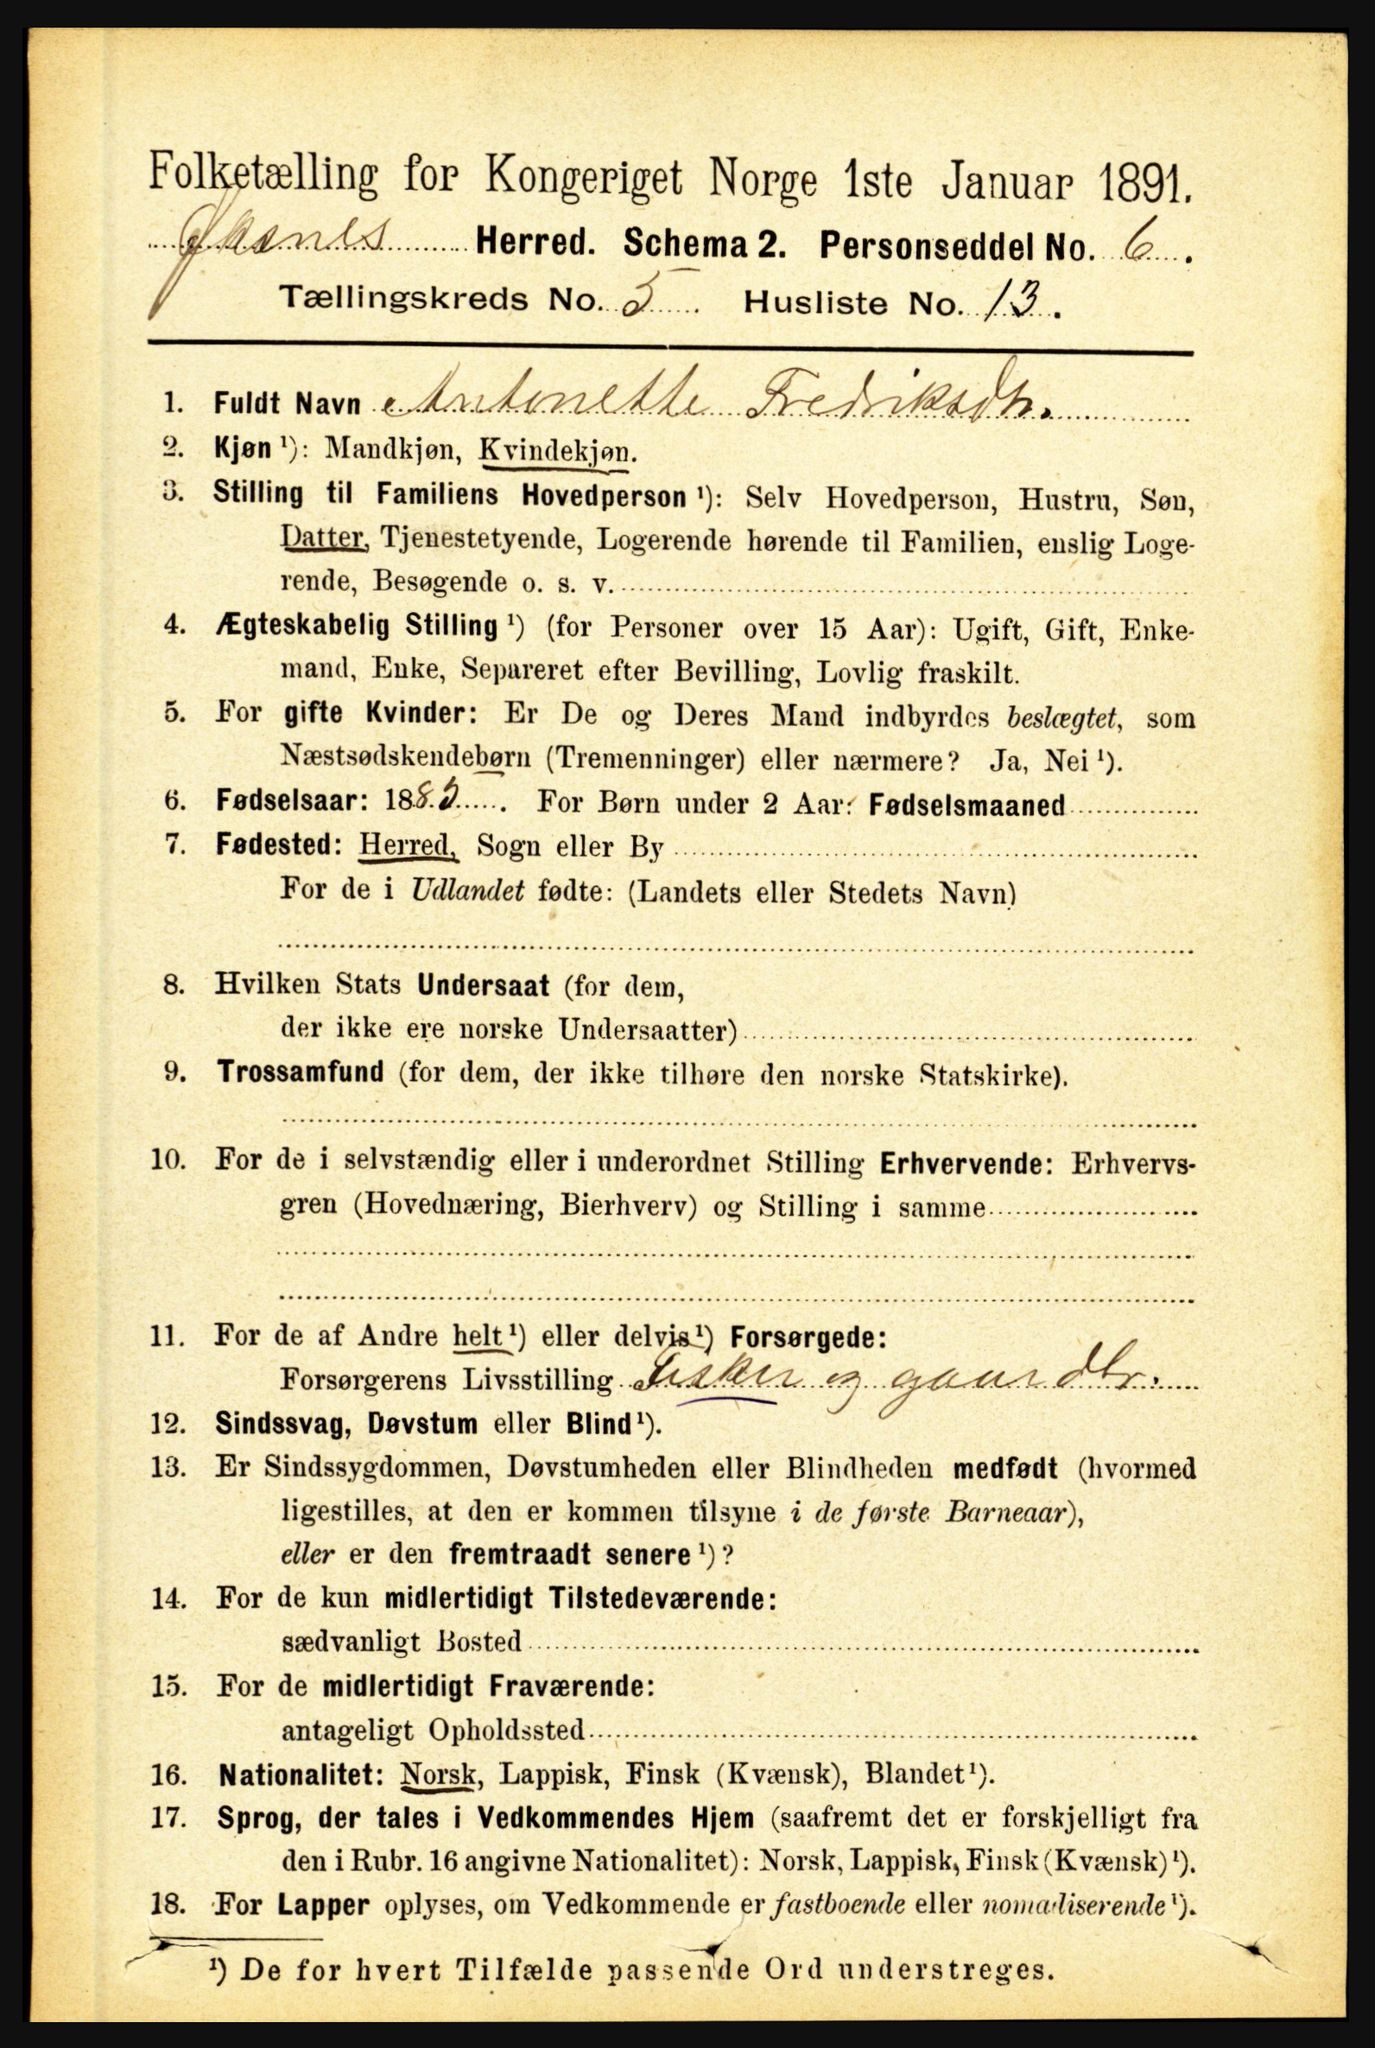 Folketælling for Kongeriget Norge 1ste Januar 1891.
Øksnes Herred. Schema 2. Personseddel No. 6.
Tællingskreds No. 5 Husliste No. 13.
1. Fuldt Navn Antonette Fredriksdtr.
2. Kjøn ¹): Mandkjøn, Kvindekjøn.
3. Stilling til Familiens Hovedperson ¹): Selv Hovedperson, Hustru, Søn,
Datter, Tjenestetyende, Logerende hørende til Familien, enslig Loge-
rende, Besøgende o. s. v.
4. Ægteskabelig Stilling ¹) (for Personer over 15 Aar): Ugift, Gift, Enke-
mand, Enke, Separeret efter Bevilling, Lovlig fraskilt.
5. For gifte Kvinder: Er De og Deres Mand indbyrdes beslægtet, som
Næstsødskendebørn (Tremenninger) eller nærmere? Ja, Nei ¹).
6. Fødselsaar: 1883. For Børn under 2 Aar: Fødselsmaaned
7. Fødested: Herred, Sogn eller By
For de i Udlandet fødte: (Landets eller Stedets Navn)
8. Hvilken Stats Undersaat (for dem,
der ikke ere norske Undersaatter)
9. Trossamfund (for dem, der ikke tilhøre den norske Statskirke).
10. For de i selvstændig eller i underordnet Stilling Erhvervende: Erhvervs-
gren (Hovednæring, Bierhverv) og Stilling i samme
11. For de af Andre helt ¹) eller delvis ¹) Forsørgede:
Forsørgerens Livsstilling Fisker og gaardbr.
12. Sindssvag, Døvstum eller Blind ¹).
13. Er Sindssygdommen, Døvstumheden eller Blindheden medfødt (hvormed
ligestilles, at den er kommen tilsyne i de første Barneaar),
eller er den fremtraadt senere ¹)?
14. For de kun midlertidigt Tilstedeværende:
sædvanligt Bosted
15. For de midlertidigt Fraværende:
antageligt Opholdssted
16. Nationalitet: Norsk, Lappisk, Finsk (Kvænsk), Blandet ¹).
17. Sprog, der tales i Vedkommendes Hjem (saafremt det er forskjelligt fra
den i Rubr. 16 angivne Nationalitet): Norsk, Lappisk, Finsk (Kvænsk) ¹).
18. For Lapper oplyses, om Vedkommende er fastboende eller nomadiserende ¹).
¹) De for hvert Tilfælde passende Ord understreges.